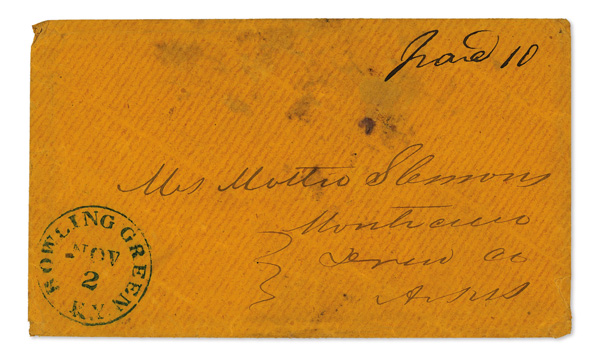 Paid 10
Mrs Mattie Slemons
Monticello
Drew Co
Arks
BOWLING GREEN
NOV
2
KY